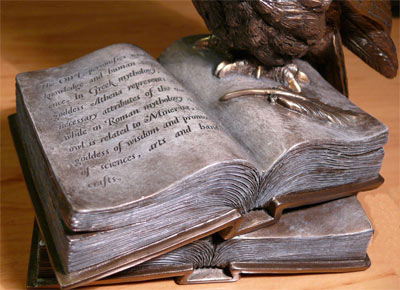 The Owl personifies
knowledge and human
ences. In Greek mythology
goddess Athena represents
necessary attributes of the
while in Roman mythology
owl is related to Minerva,
goddess of wisdom and
of sciences, arts and hand
crafts.